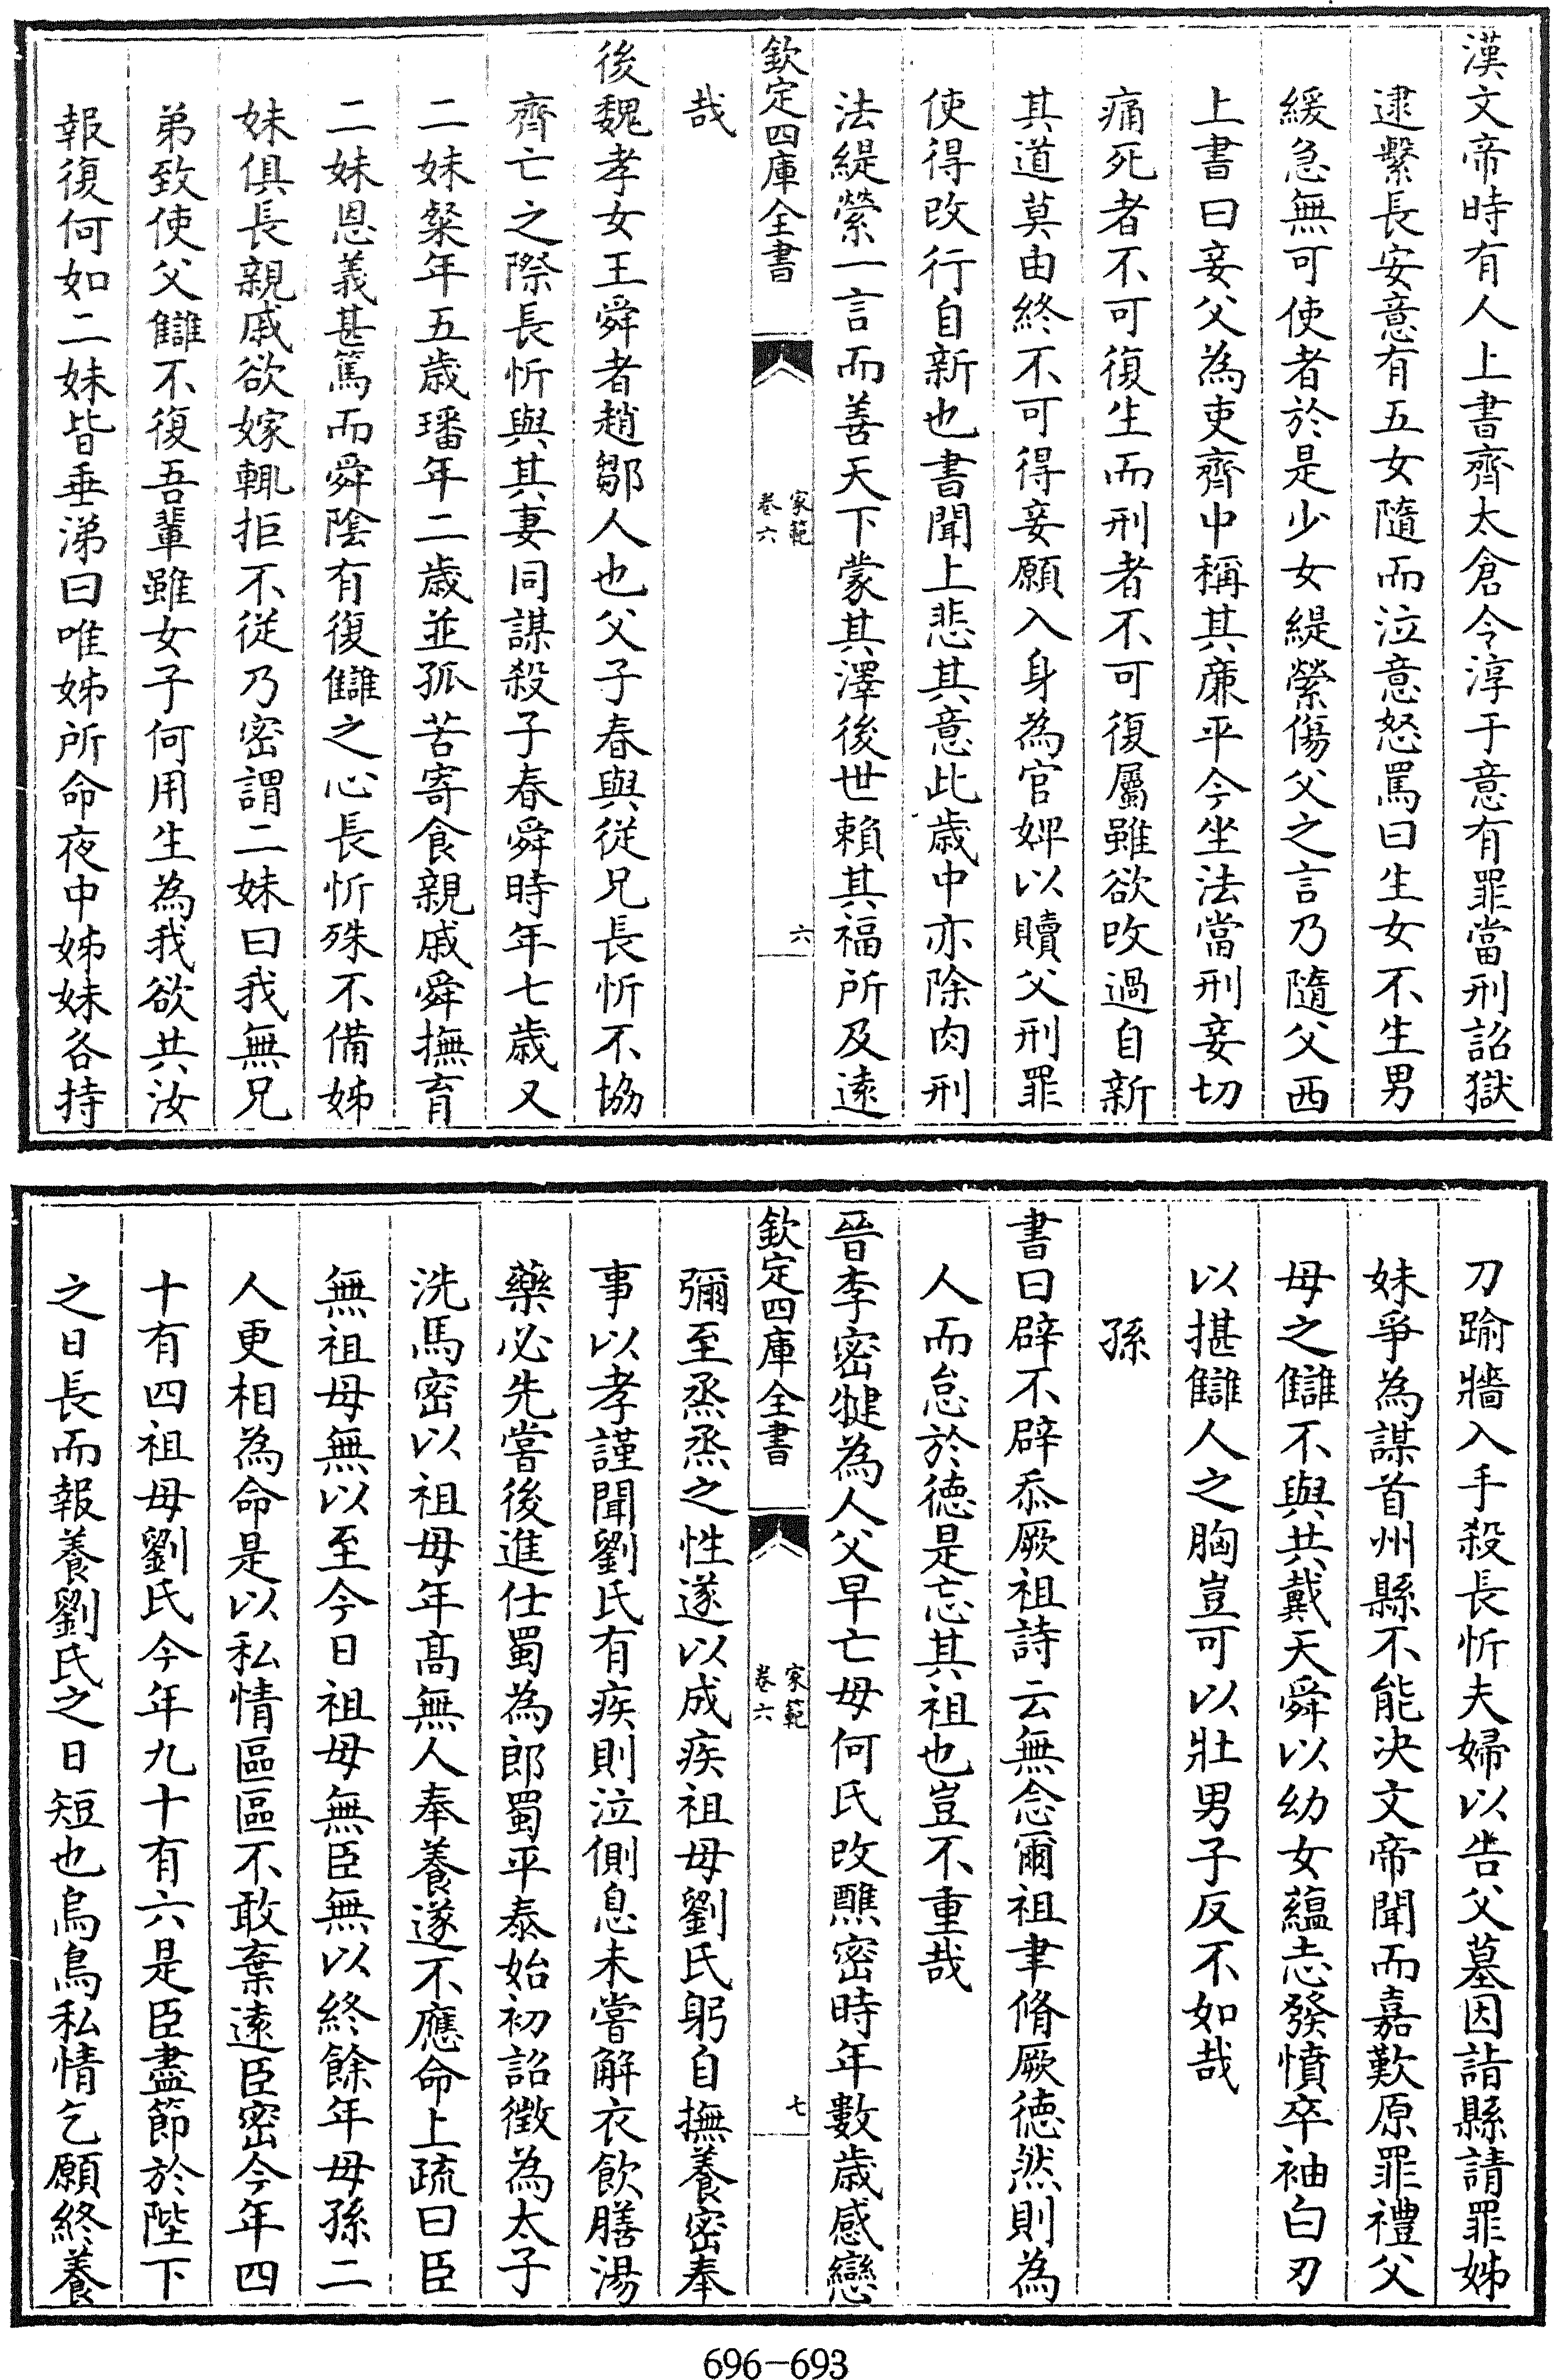 漢文帝時有人上書齊太倉令淳于意有罪當刑詔獄
逮繫長安意有五女隨而泣意怒罵曰生女不生男
緩急無可使者於是少女緹縈傷父之言乃隨父西
上書曰妾父為吏齊中稱其廉平今坐法當刑妾切
痛死者不可復生而刑者不可復屬雖欲改過自新
其道莫由終不可得妾願入身為官婢以贖父刑罪
使得改行自新也書聞上悲其意此歲中亦除肉刑
法緹縈一言而善天下蒙其澤後世賴其福所及遠
欽定四庫全書
家範
卷六
六
哉
後魏孝女王舜者趙鄒人也父子春與從兄長忻不協
齊亡之際長忻與其妻同謀殺子春舜時年七歲又
二妹粲年五歲璠年二歲並孤苦寄食親戚舜撫育
二妹恩義甚篤而舜陰有復讎之心長忻殊不備姊
妹俱長親戚欲嫁輒拒不從乃密謂二妹曰我無兄
弟致使父讎不復吾輩雖女子何用生為我欲共汝
報復何如二妹皆垂涕曰唯姊所命夜中姊妹各持
刀踰牆入手殺長忻夫婦以告父墓因詣縣請罪姊
妹爭為謀首州縣不能决文帝聞而嘉歎原罪禮父
母之讎不與共戴天舜以幼女藴志發憤卒袖白刃
以揕讎人之胸豈可以壯男子反不如哉
孫
書曰辟不辟忝厥祖詩云無念爾祖聿脩厥德然則為
人而怠於德是忘其祖也豈不重哉
晉李密犍為人父早亡母何氏改醮密時年數歲感戀
欽定四庫全書
家範
卷六
七
彌至烝烝之性遂以成疾祖母劉氏躬自撫養密奉
事以孝謹聞劉氏有疾則泣側息未嘗解衣飲膳湯
藥必先嘗後進仕蜀為郎蜀平泰始初詔徵為太子
洗馬密以祖母年高無人奉養遂不應命上疏曰臣
無祖母無以至今日祖母無臣無以終餘年母孫二
人更相為命是以私情區區不敢棄遠臣密今年四
十有四祖母劉氏今年九十有六是臣盡節於陛下
之日長而報養劉氏之日短也烏鳥私情乞願終養
696-693